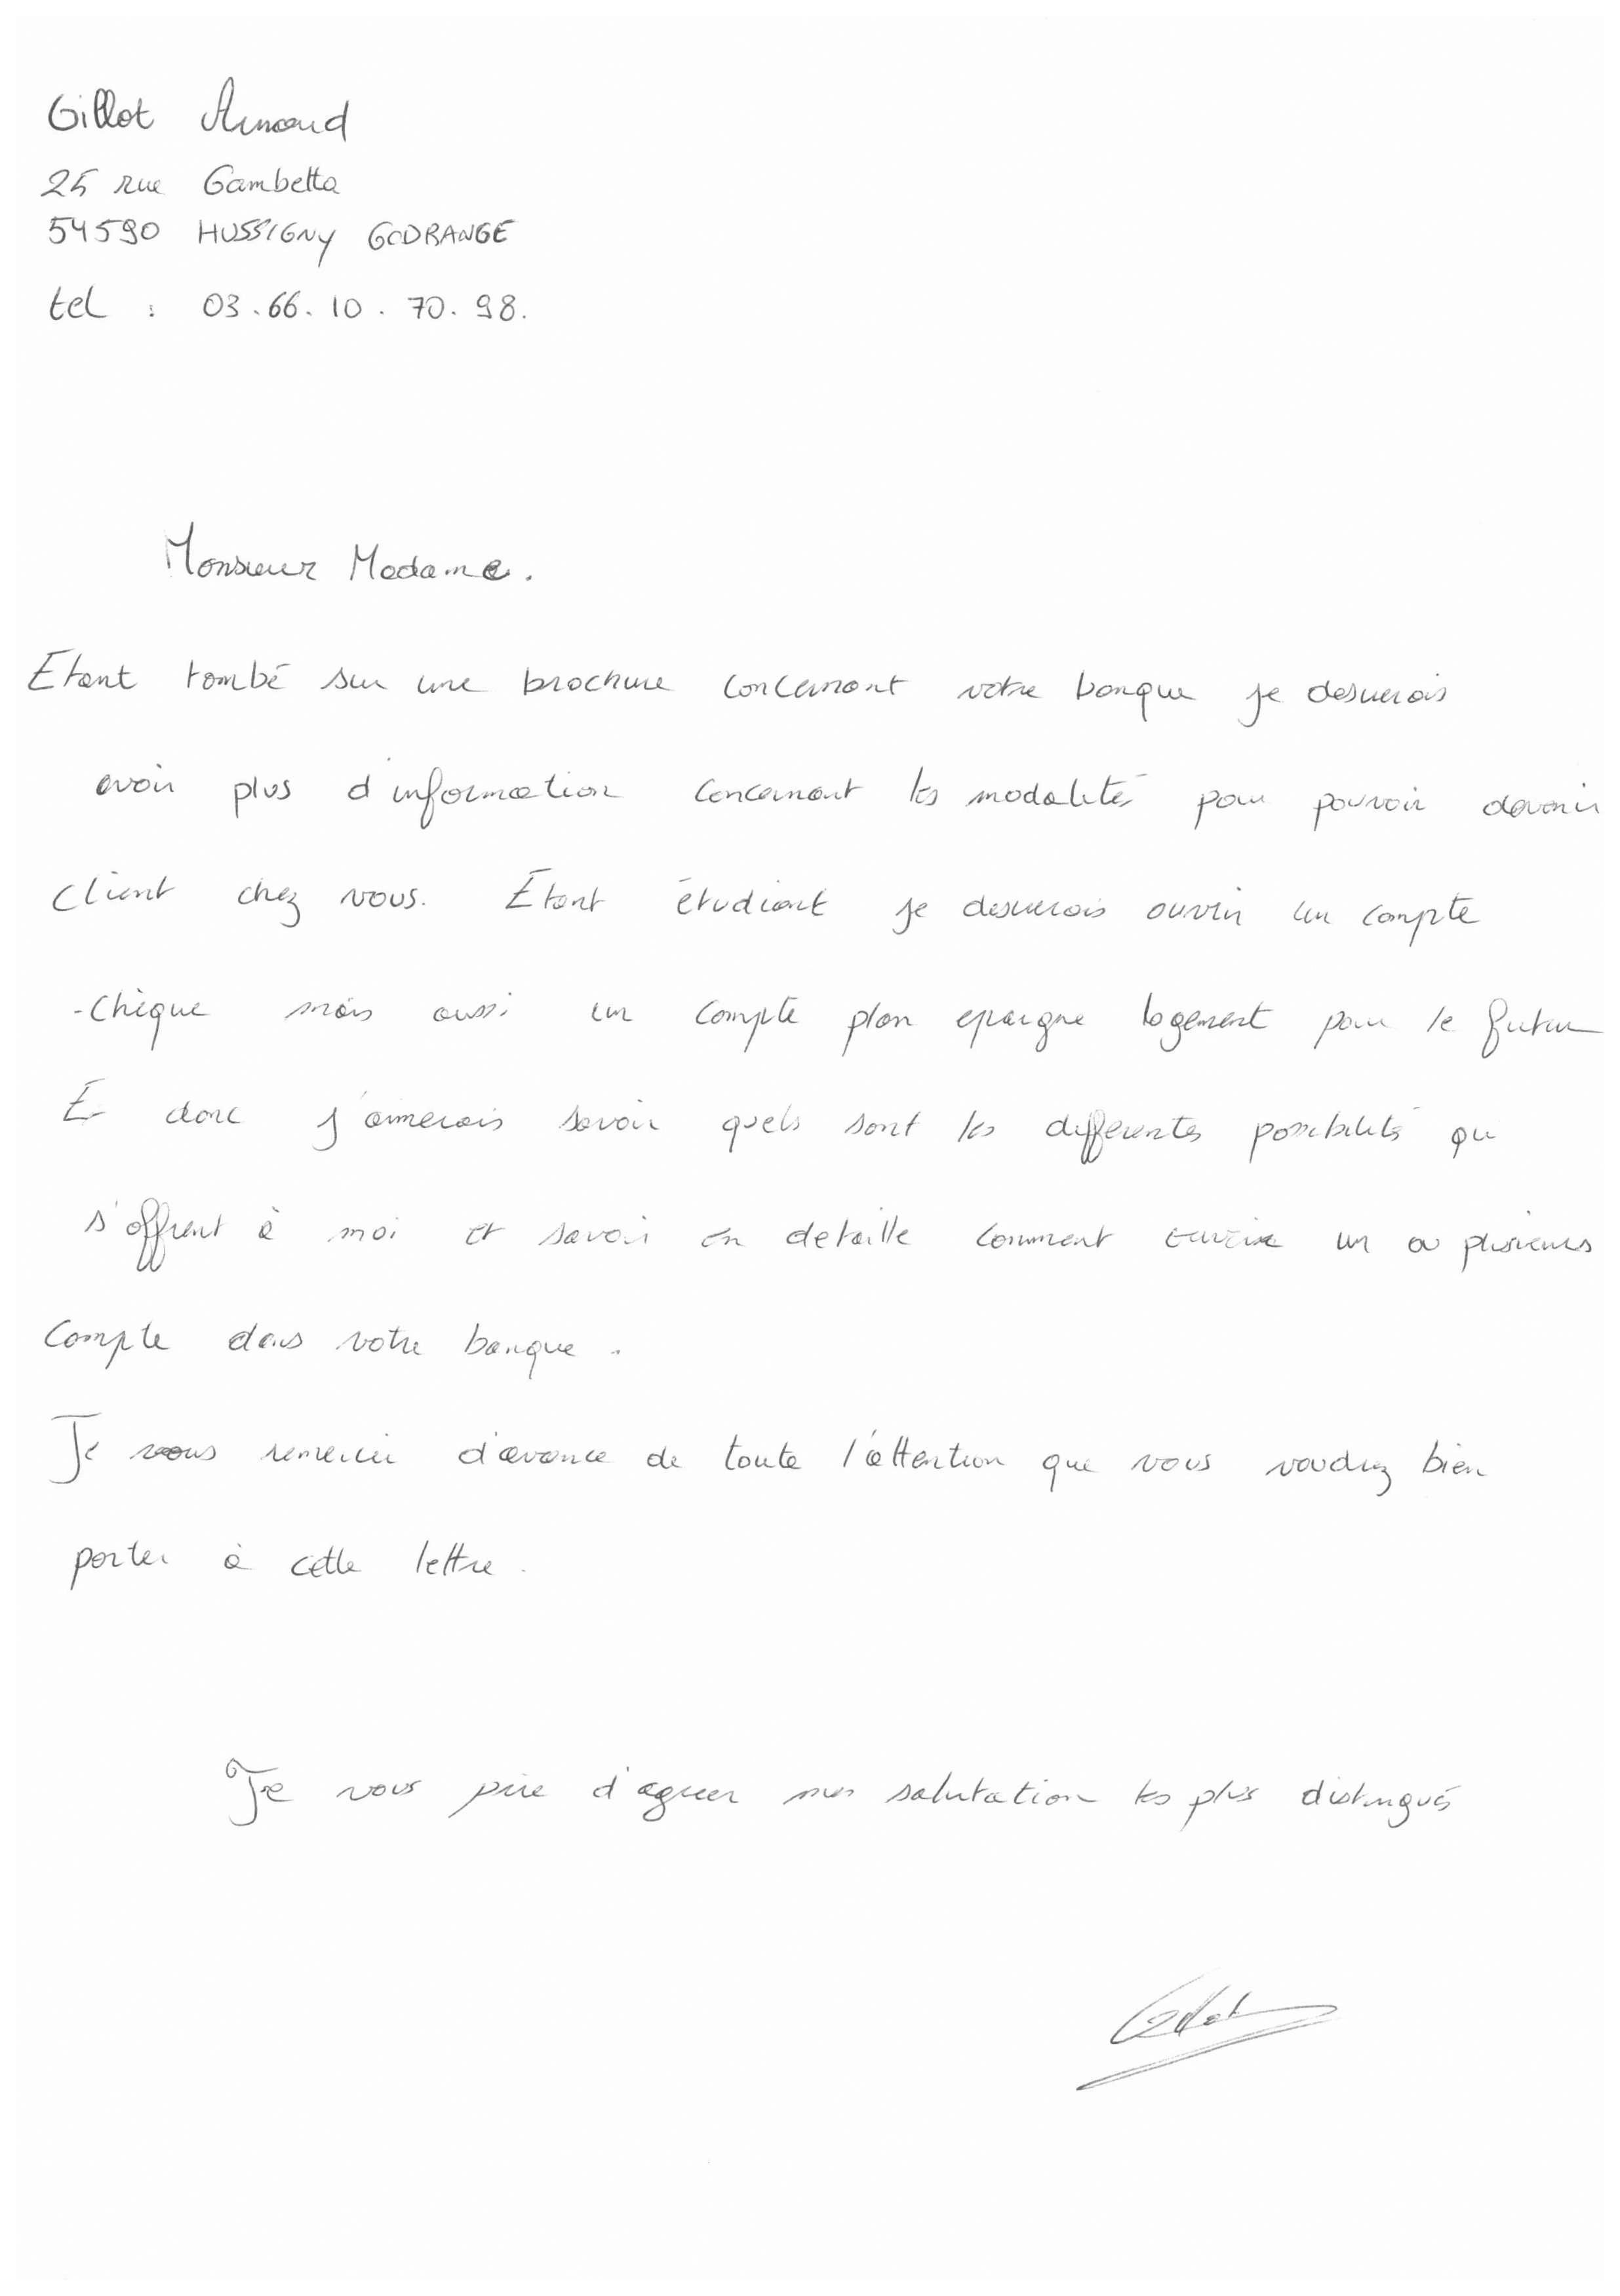 Gillot Arnaud
25 rue Gambetta
54590 HUSSIGNY GODRANGE
tel : 03.66.10.70.98.
Monsieur Madame.
Etant tombé sur une brochure concernant votre banque je desirerais
avoir plus d'information concernant les modalités pour pouvoir devenir
client chez vous. Etant étudiant je desirerais ouvrir un compte
-chèque mais aussi un compte plan epargne logement pour le futur
Et donc j'aimerais savoir quels sont les differentes possibilités qui
s'offrent à moi et savoir en detaille comment ouvrire un ou plusieurs
compte dans votre banque.
Je vous remercier d'avance de toute l'attention que vous voudrez bien
porter à cette lettre.
Je vous prie d'agreer mes salutation les plus distingués